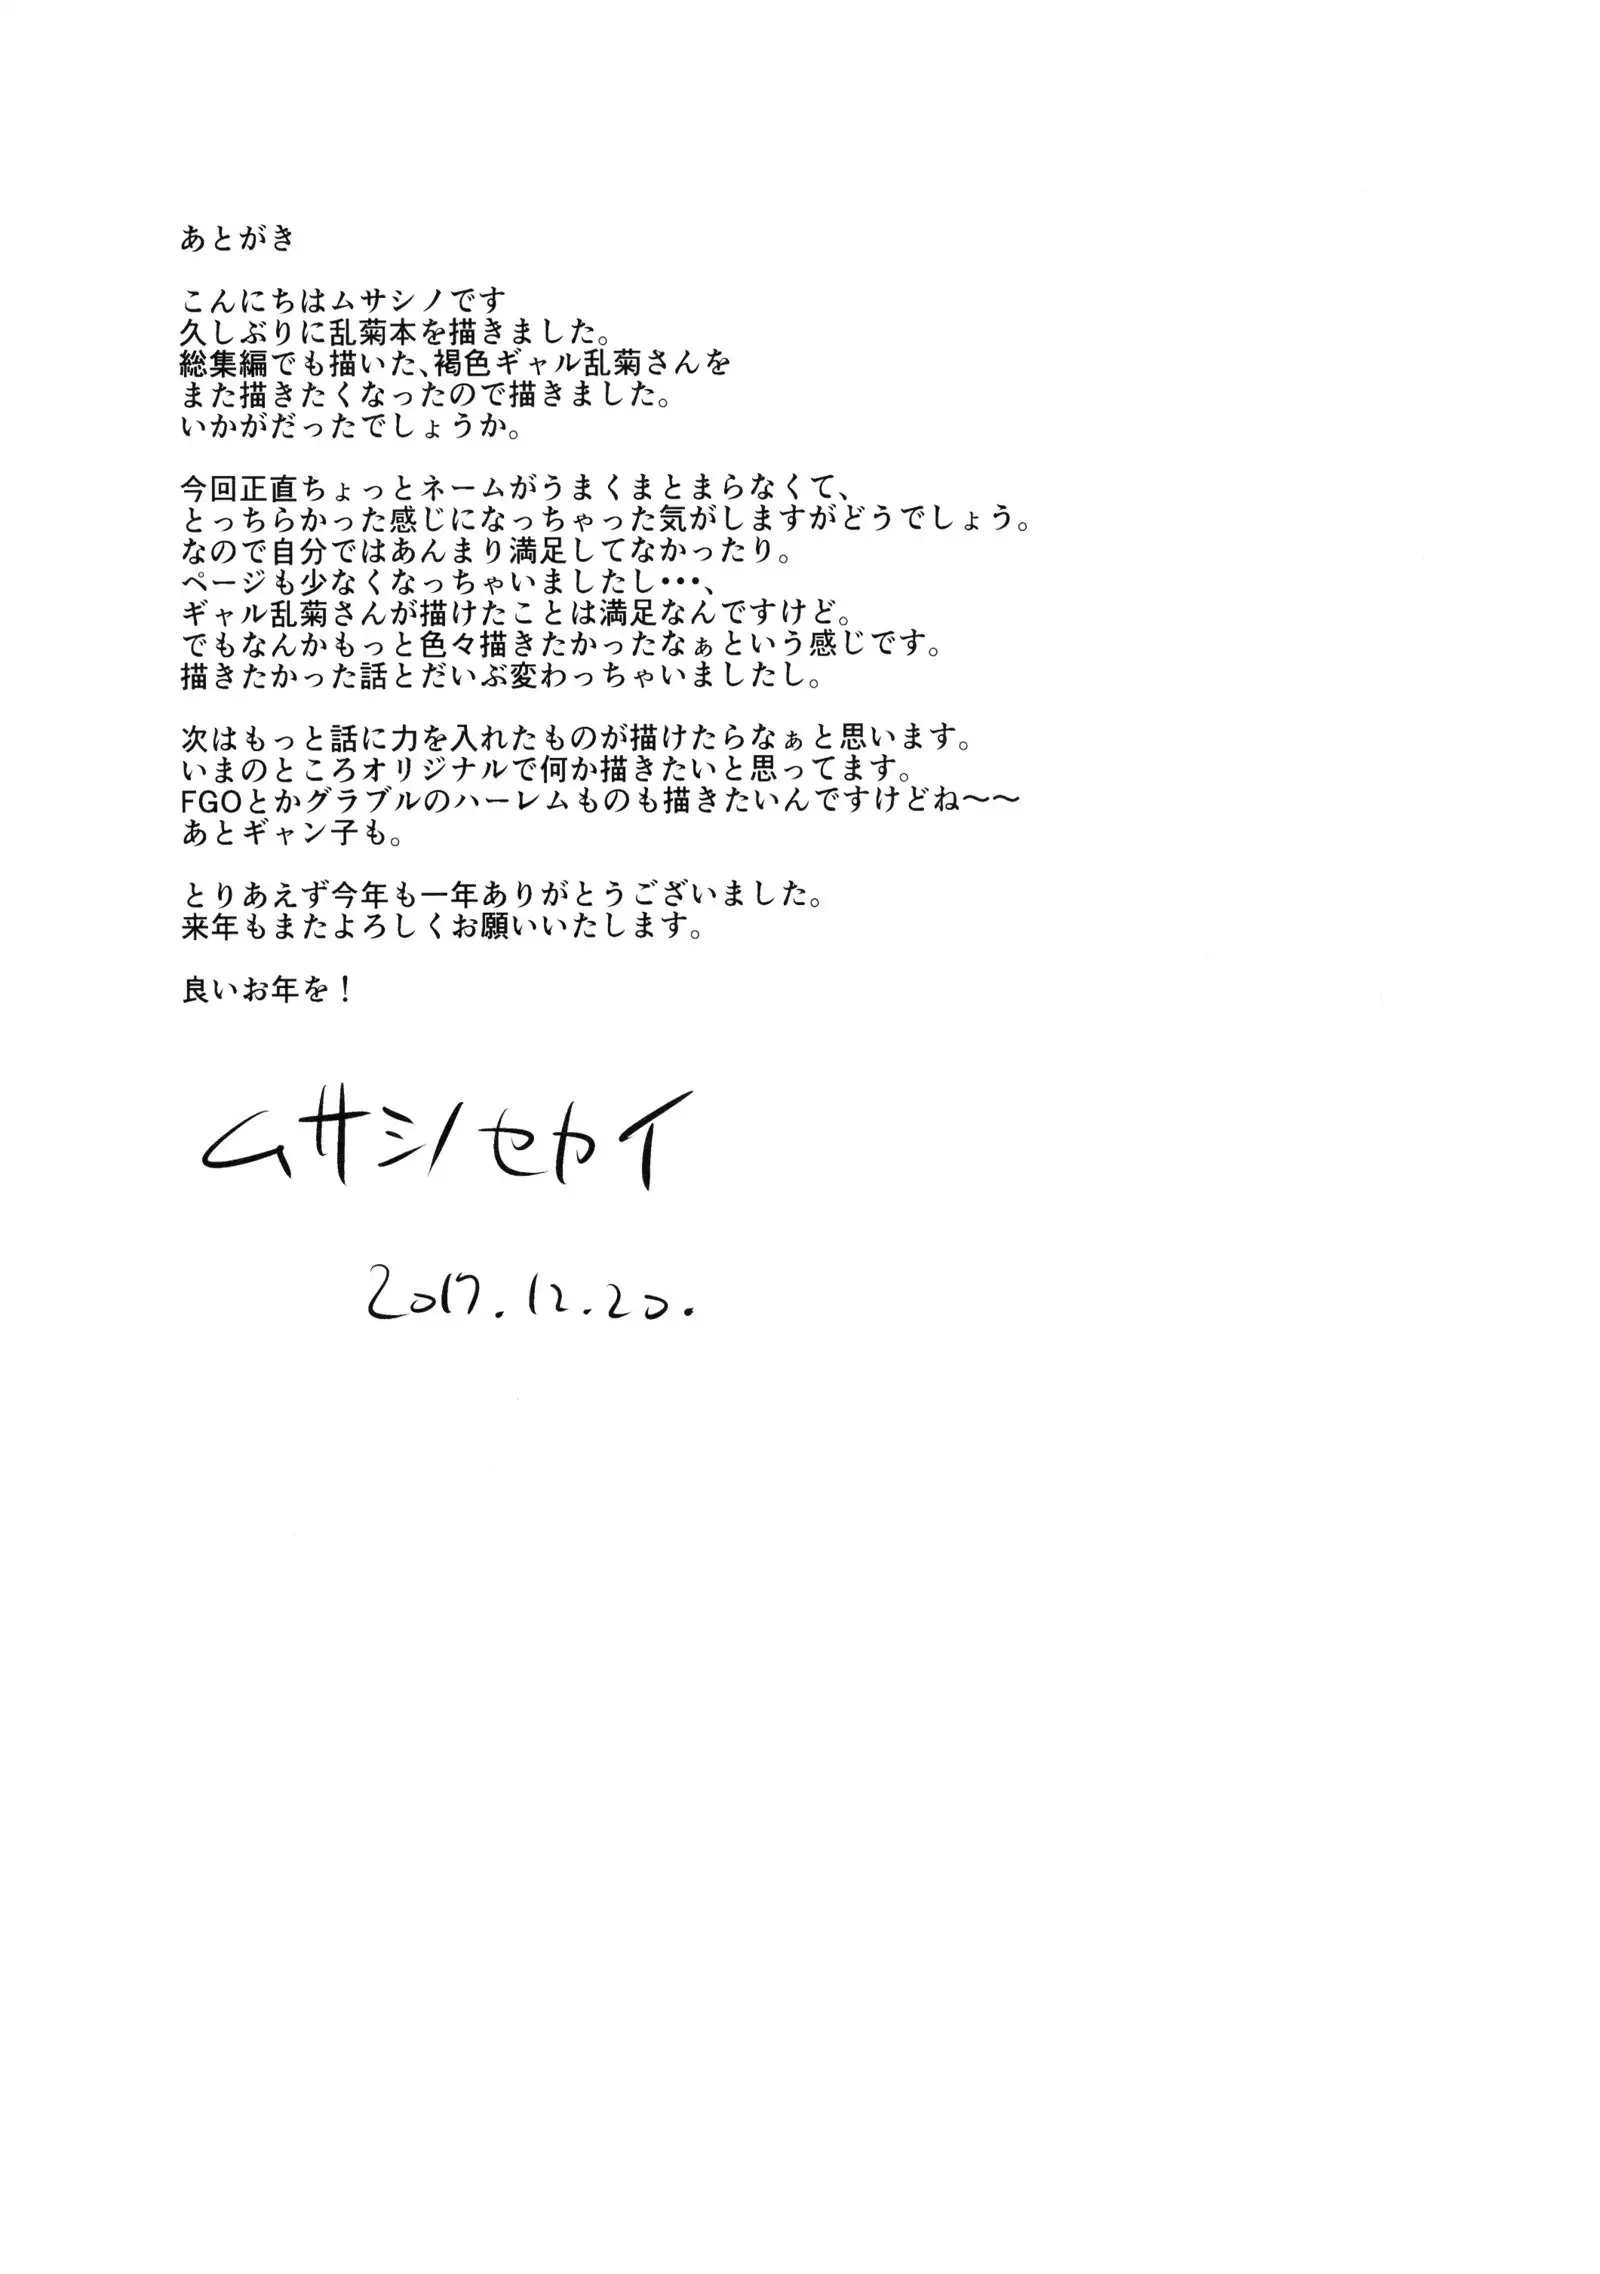 あとがき
こんにちはムサシノです
久しぶりに乱菊本を描きました。
総集編でも描いた、褐色ギャル乱菊さんを
また描きたくなったので描きました。
いかがだったでしょうか。
今回正直ちょっとネームがうまくまとまらなくて、
とっちらかった感じになっちゃった気がしますがどうでしょう。
なので自分ではあんまり満足してなかったり。
ページも少なくなっちゃいましたし・・・、
ギャル乱菊さんが描けたことは満足なんですけど。
でもなんかもっと色々描きたかったなぁという感じです。
描きたかった話とだいぶ変わっちゃいましたし。
次はもっと話に力を入れたものが描けたらなぁと思います。
いまのところオリジナルで何か描きたいと思ってます。
FGOとかグラブルのハーレムものも描きたいんですけどね〜〜
あとギャン子も。
とりあえず今年も一年ありがとうございました。
来年もまたよろしくお願いいたします。
良いお年を！
ムサシノセカイ
2017.12.20.